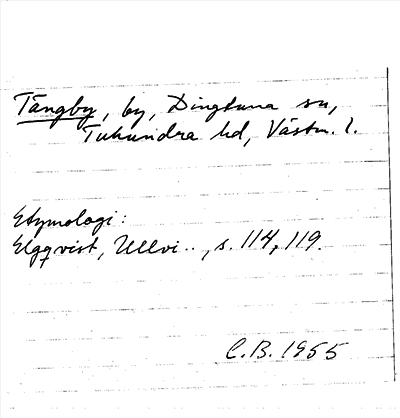 Tångby, by, Dingtuna sn,
Tuhundra hd, Västm. l.
Etymologi:
Elgqvist, Ullvi.., s. 114, 119.
C.B. 1955